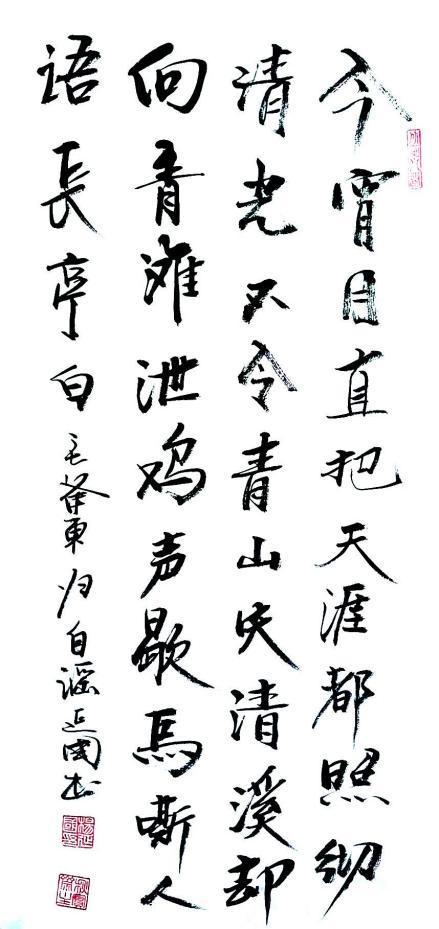 今宵月直把天涯都照彻
清光不令青山失清溪却
向青滩泄鸡声歇马嘶人
语長亭白 毛澤東归自谣延国书